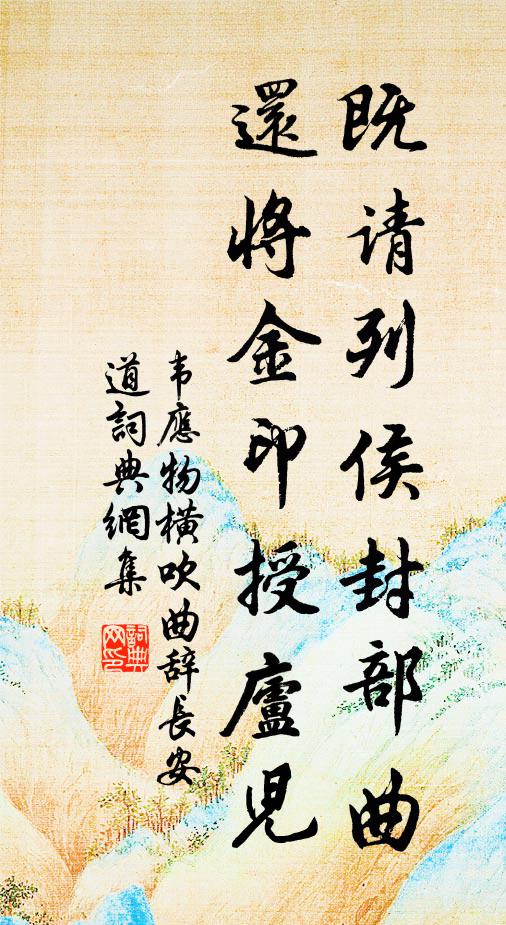 既请列侯封部曲
還將金印授廬児
韦應物橫吹曲辞長安
道詞典網集
詞典网印